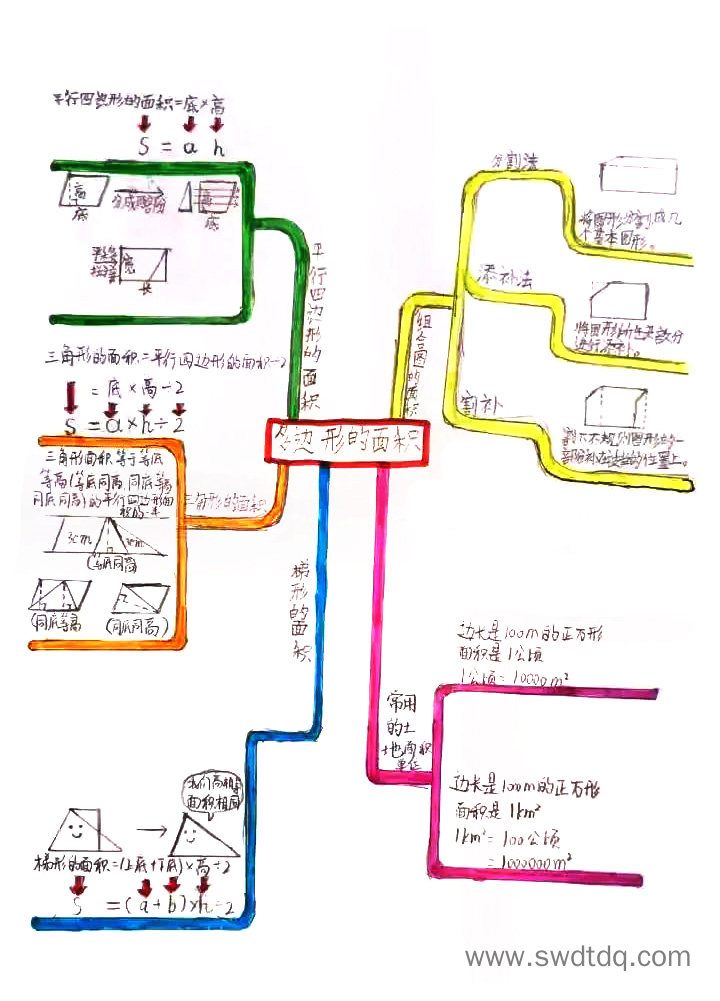 平行四边形的面积=底×高
S = a h
高
底
分成两份
高
底
平移
拼接
宽
长
平行四边形的面积
三角形的面积=平行四边形的面积÷2
= 底×高÷2
S = a×h÷2
三角形面积等于等底
等高(等底同高,同底等高
同底同高)的平行四边形面
积的一半
3cm
3cm
(等底同高)
(同底等高)
(同底同高)
三角形的面积
多边形的面积
组合图的面积
分割法
将图形分割成几
个基本图形。
添补法
将图形所缺部分
进行添补。
割补
割下不规则图形的一
部分补在适当的位置上。
梯形的面积
我们高相等
面积相同
梯形的面积=(上底+下底)×高÷2
S =(a+b)×h÷2
常用
的土
土地面积
单位
边长是100m的正方形
面积是1公顷
1公顷=10000m²
边长是100m的正方形
面积是1km²
1km²=100公顷
=1000000m²
www.swdtdq.com